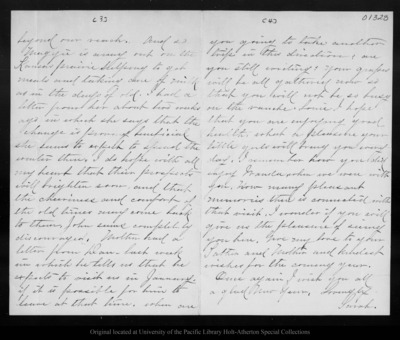 (3)
beyond our reach. And so
Maggie is away out on the
Kansas prairie helping to get
meals and taking care of milk
as in the days of old. I had a
letter from her about two weeks
ago in which she says that the
change is proving beneficial
she seems to expect to spend the
winter there. I do hope with all
my heart that their prospects
will brighten soon, and that
the cheeriness and comfort of
the old times may come back
to them. John seems completely
discouraged. Mother had a
letter from Dan last week
in which he tells us that he
expects to visit us in January
if it is possible for him to
leave at that time. When are
(4)
01325
you going to take another
trip in this direction; are
you still writing? Your grapes
will be all gathered now so
that you will not be so busy
on the ranch. Louie I hope
that you are enjoying good
health. What a pleasure your
little girls will bring you every
day. I remember how you did
enjoy Wanda when we were with
you. How many pleasant
memories there is connected with
that visit. I wonder if you will
give us the pleasure of seeing
you here. Give my love to your
Father and Mother and kindest
wishes for the coming year.
Once again I wish you all
a glad New Year. Lovingly
Sarah.
Original located at University of the Pacific Library Holt-Atherton Special Collections